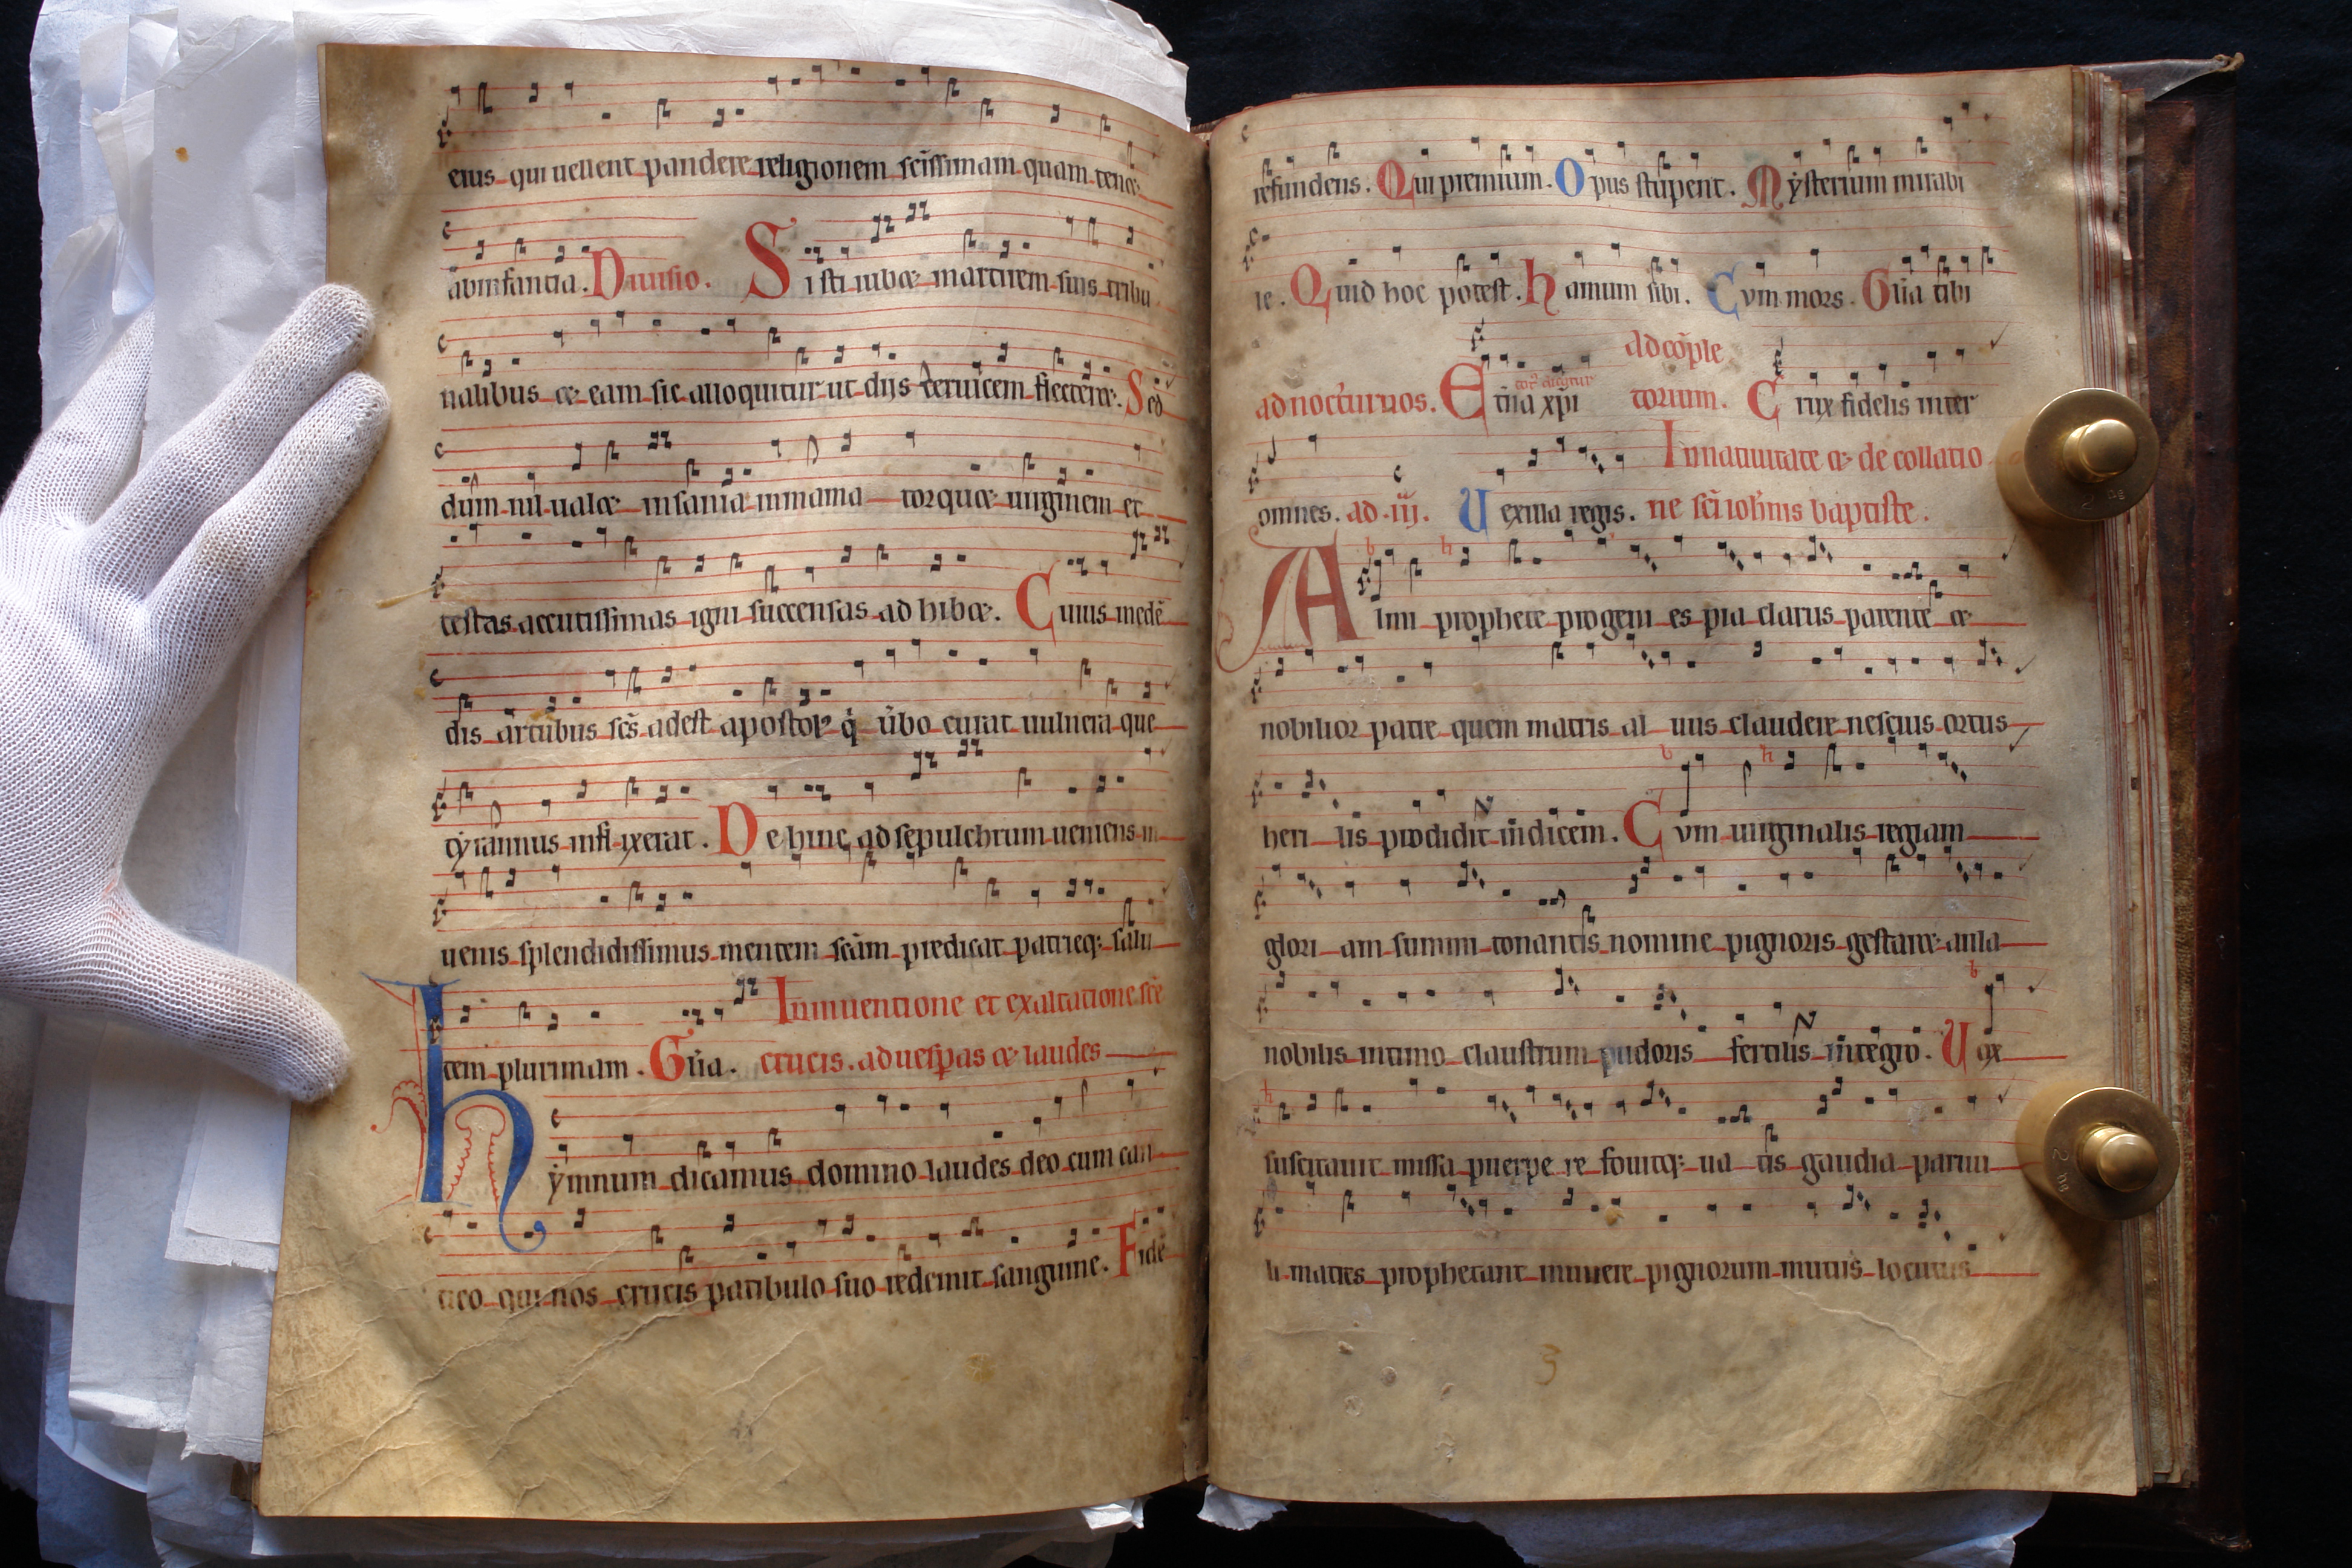 eius qui uellent pandere religionem sc̄issimam quam tene
ab infantia. Diuisio. Sisti iubet martirem suis tribu
nalibus et eam sic alloquitur ut diis ceruicem flectere. Secū
dum nil ualet insania inmama torquet uirginem et
testas accutissimas igni succensas adhibet. Cuius medē
dis artubus sc̄s adest apostol q̇ ūbo curat uulnera que
tyrannus infixerat. Dehinc ad sepulchrum ueniens iu
uenis splendidissimus mentem sc̄am predicat patrieq: salu
In inuentione et exaltatione sc̄e
tem plurimam. Gl̄ia. crucis. ad uesp̄as et laudes
hẏmnum dicamus domino laudes deo cum can
tico qui nos crucis patibulo suo redemit sanguine. Fide
refundens. Qui premium. Opus stupent. Mẏsterium mirabi
le. Quid hoc potest. hamum sibi. Cum mors. Gl̄ia tibi
ad cōple
ad nocturnos. Et̄na xp̄i torum. Crux fidelis inter
In natiuitate et de collatio
omnes. ad .iij. Uexilla regis. ne sc̄i ioh̄nis baptiste.
b h
Almi prophete progeni es pia clarus parente et
nobilior patre quem matris al uus claudere nescius ortus
b h
heri lis prodidit īndicem. Cum uirginalis regiam
glori am summi tonantis nomine pignoris gestaret aula
b
nobilis intimo claustrum pudoris fertilis īntegro. Uox
h
suscitauit missa puerpe re fouitq: ua tis gaudia paruu
li matres prophetant munere pignorum mutus locutus